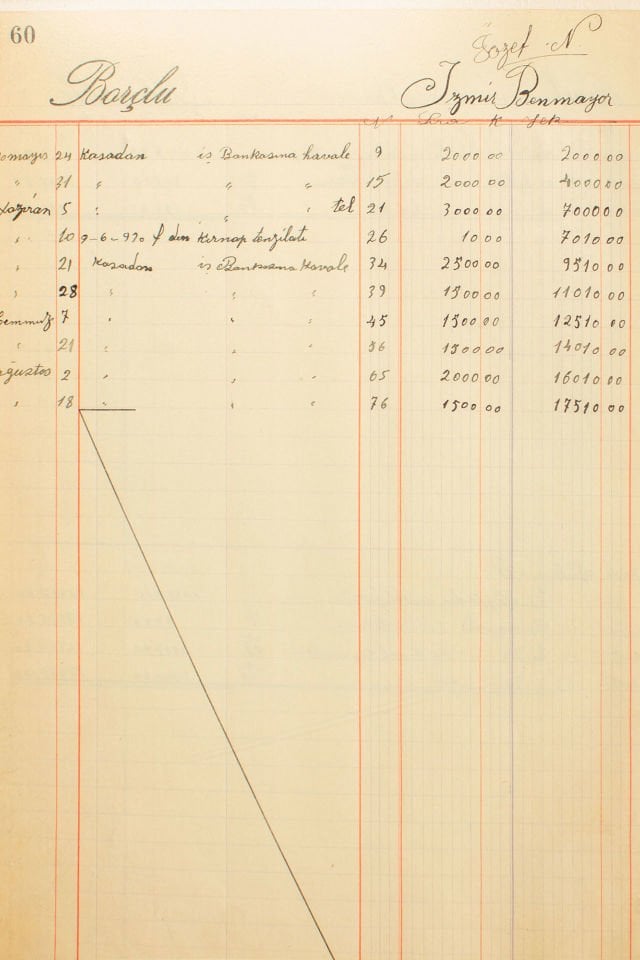 60
Jozef N.
Borçlu İzmir Benmayor
N Lira K Yek
mayıs 24 Kasadan iş Bankasına havale 9 2000 00 2000 00
" 31 " " " 15 2000 00 4000 00
Haziran 5 " " " tel 21 3000 00 7000 00
" 10 9-6-930 f den tenzilatı 26 10 00 7010 00
" 21 Kasadan iş Bankasına havale 34 2500 00 9510 00
" 28 " " " 39 1500 00 11010 00
Temmuz 7 " " " 45 1500 00 12510 00
" 21 " " " 56 1500 00 14010 00
ağustos 2 " " " 65 2000 00 16010 00
" 18 " " " 76 1500 00 17510 00